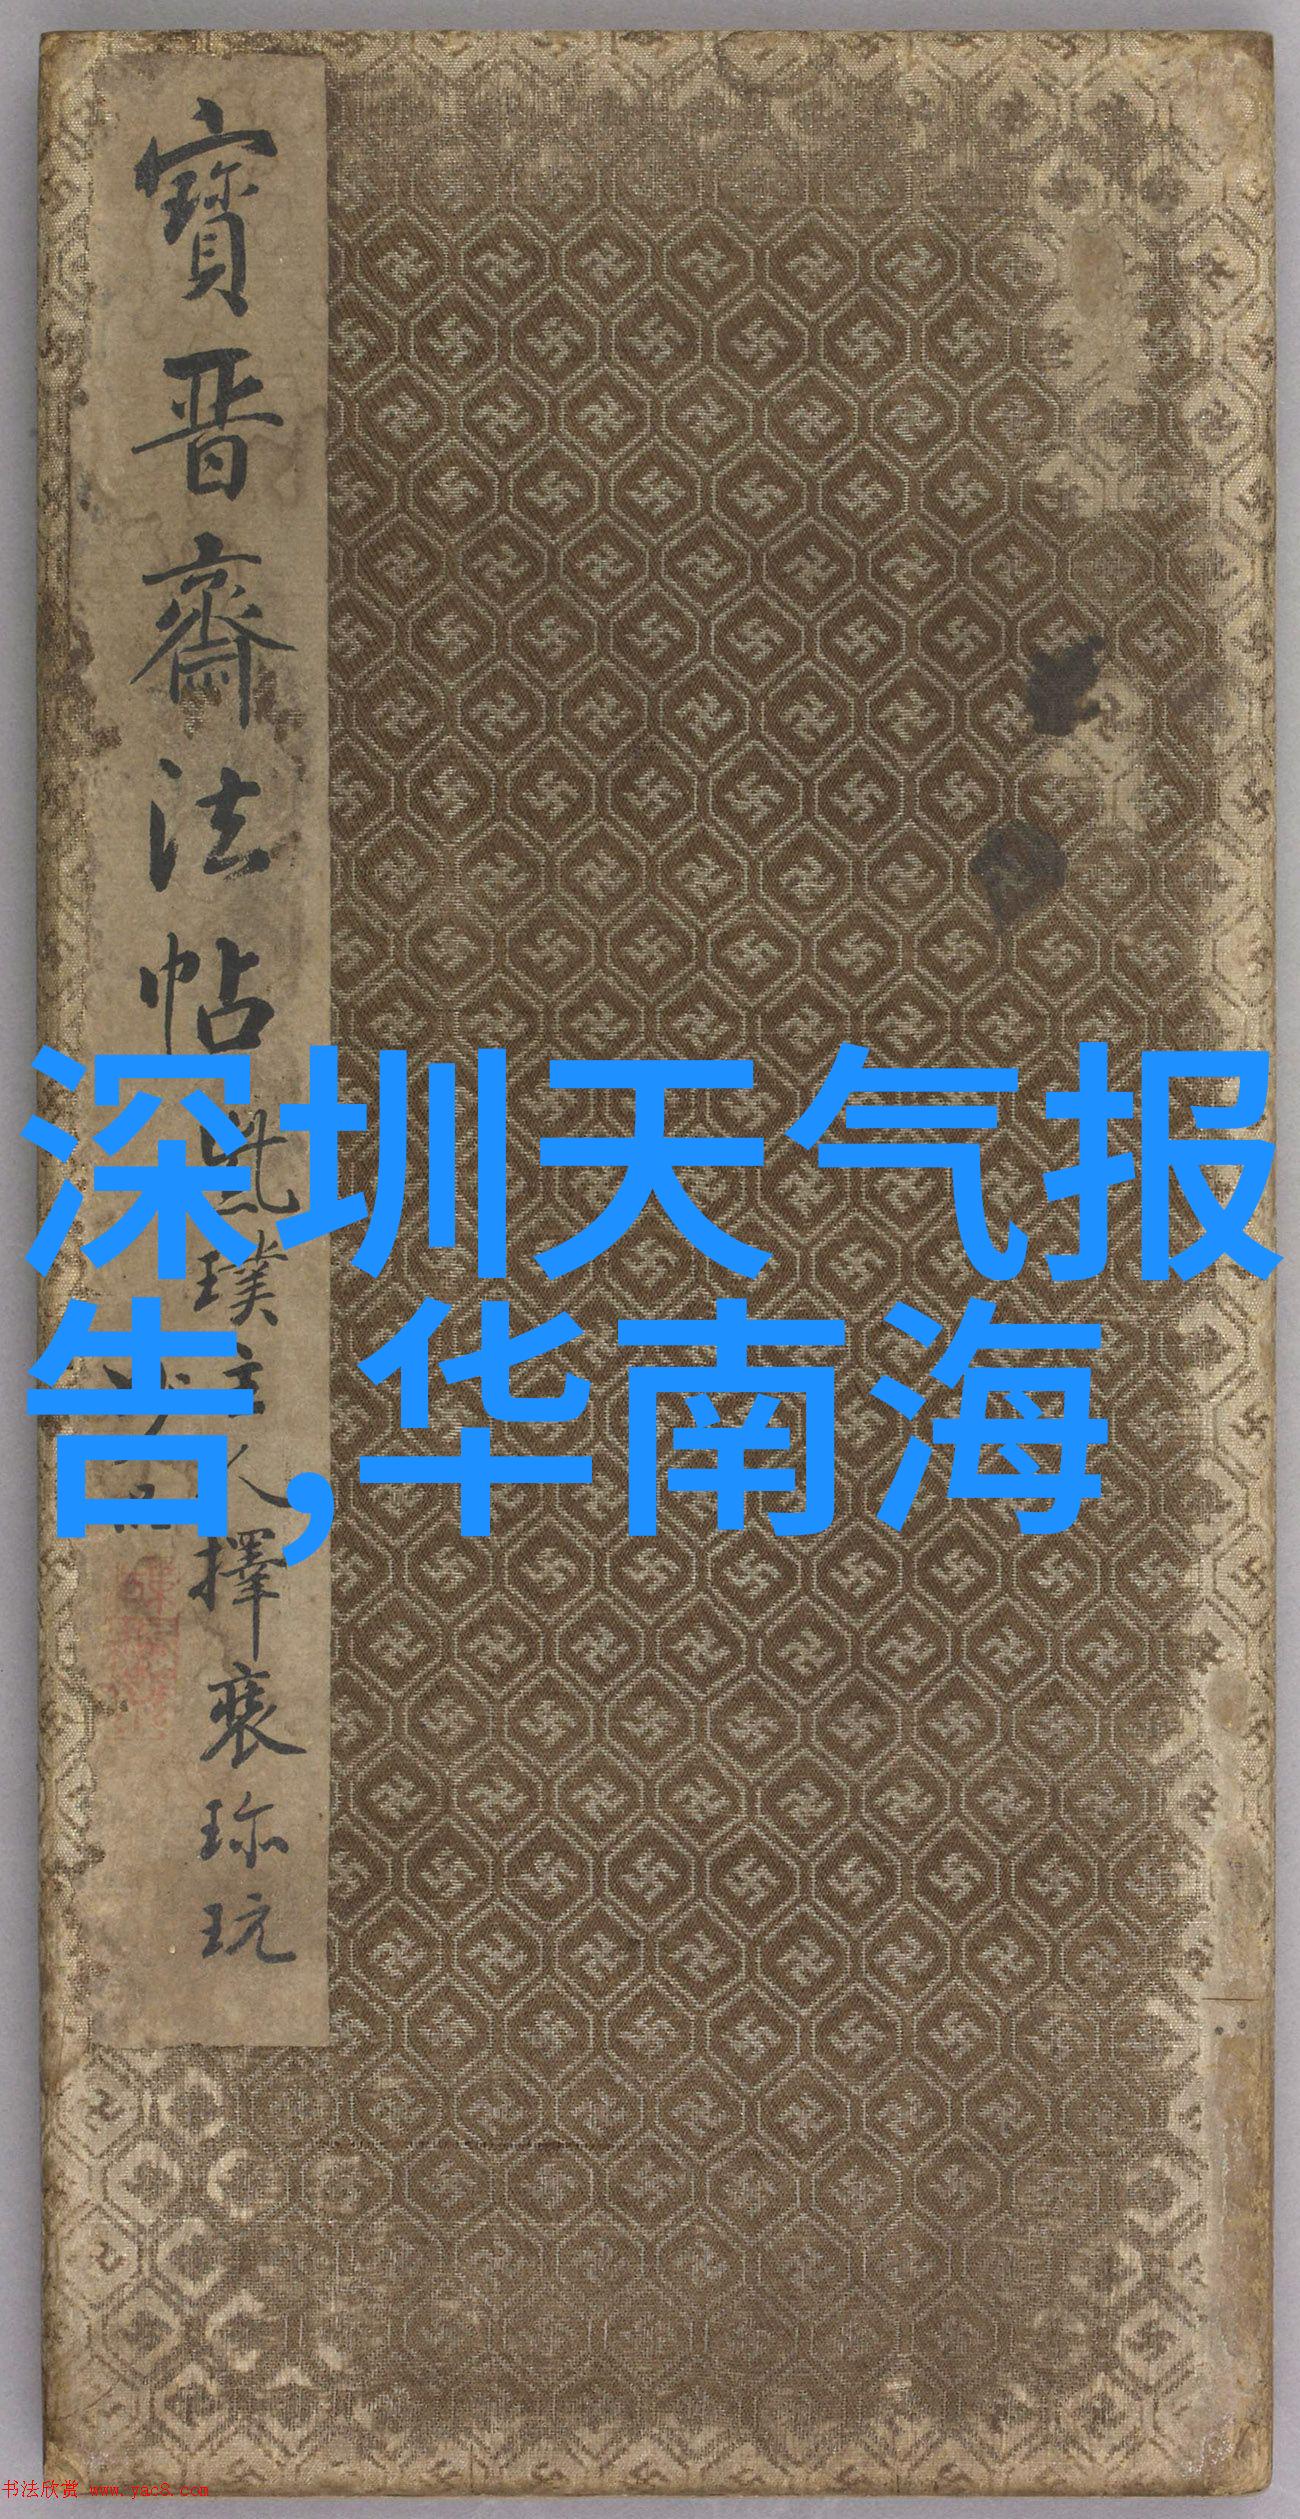 寶晋齋法帖
璞主人擇裘珎玩
深圳天气报
告,华南海
书法欣赏 www.yac8.com